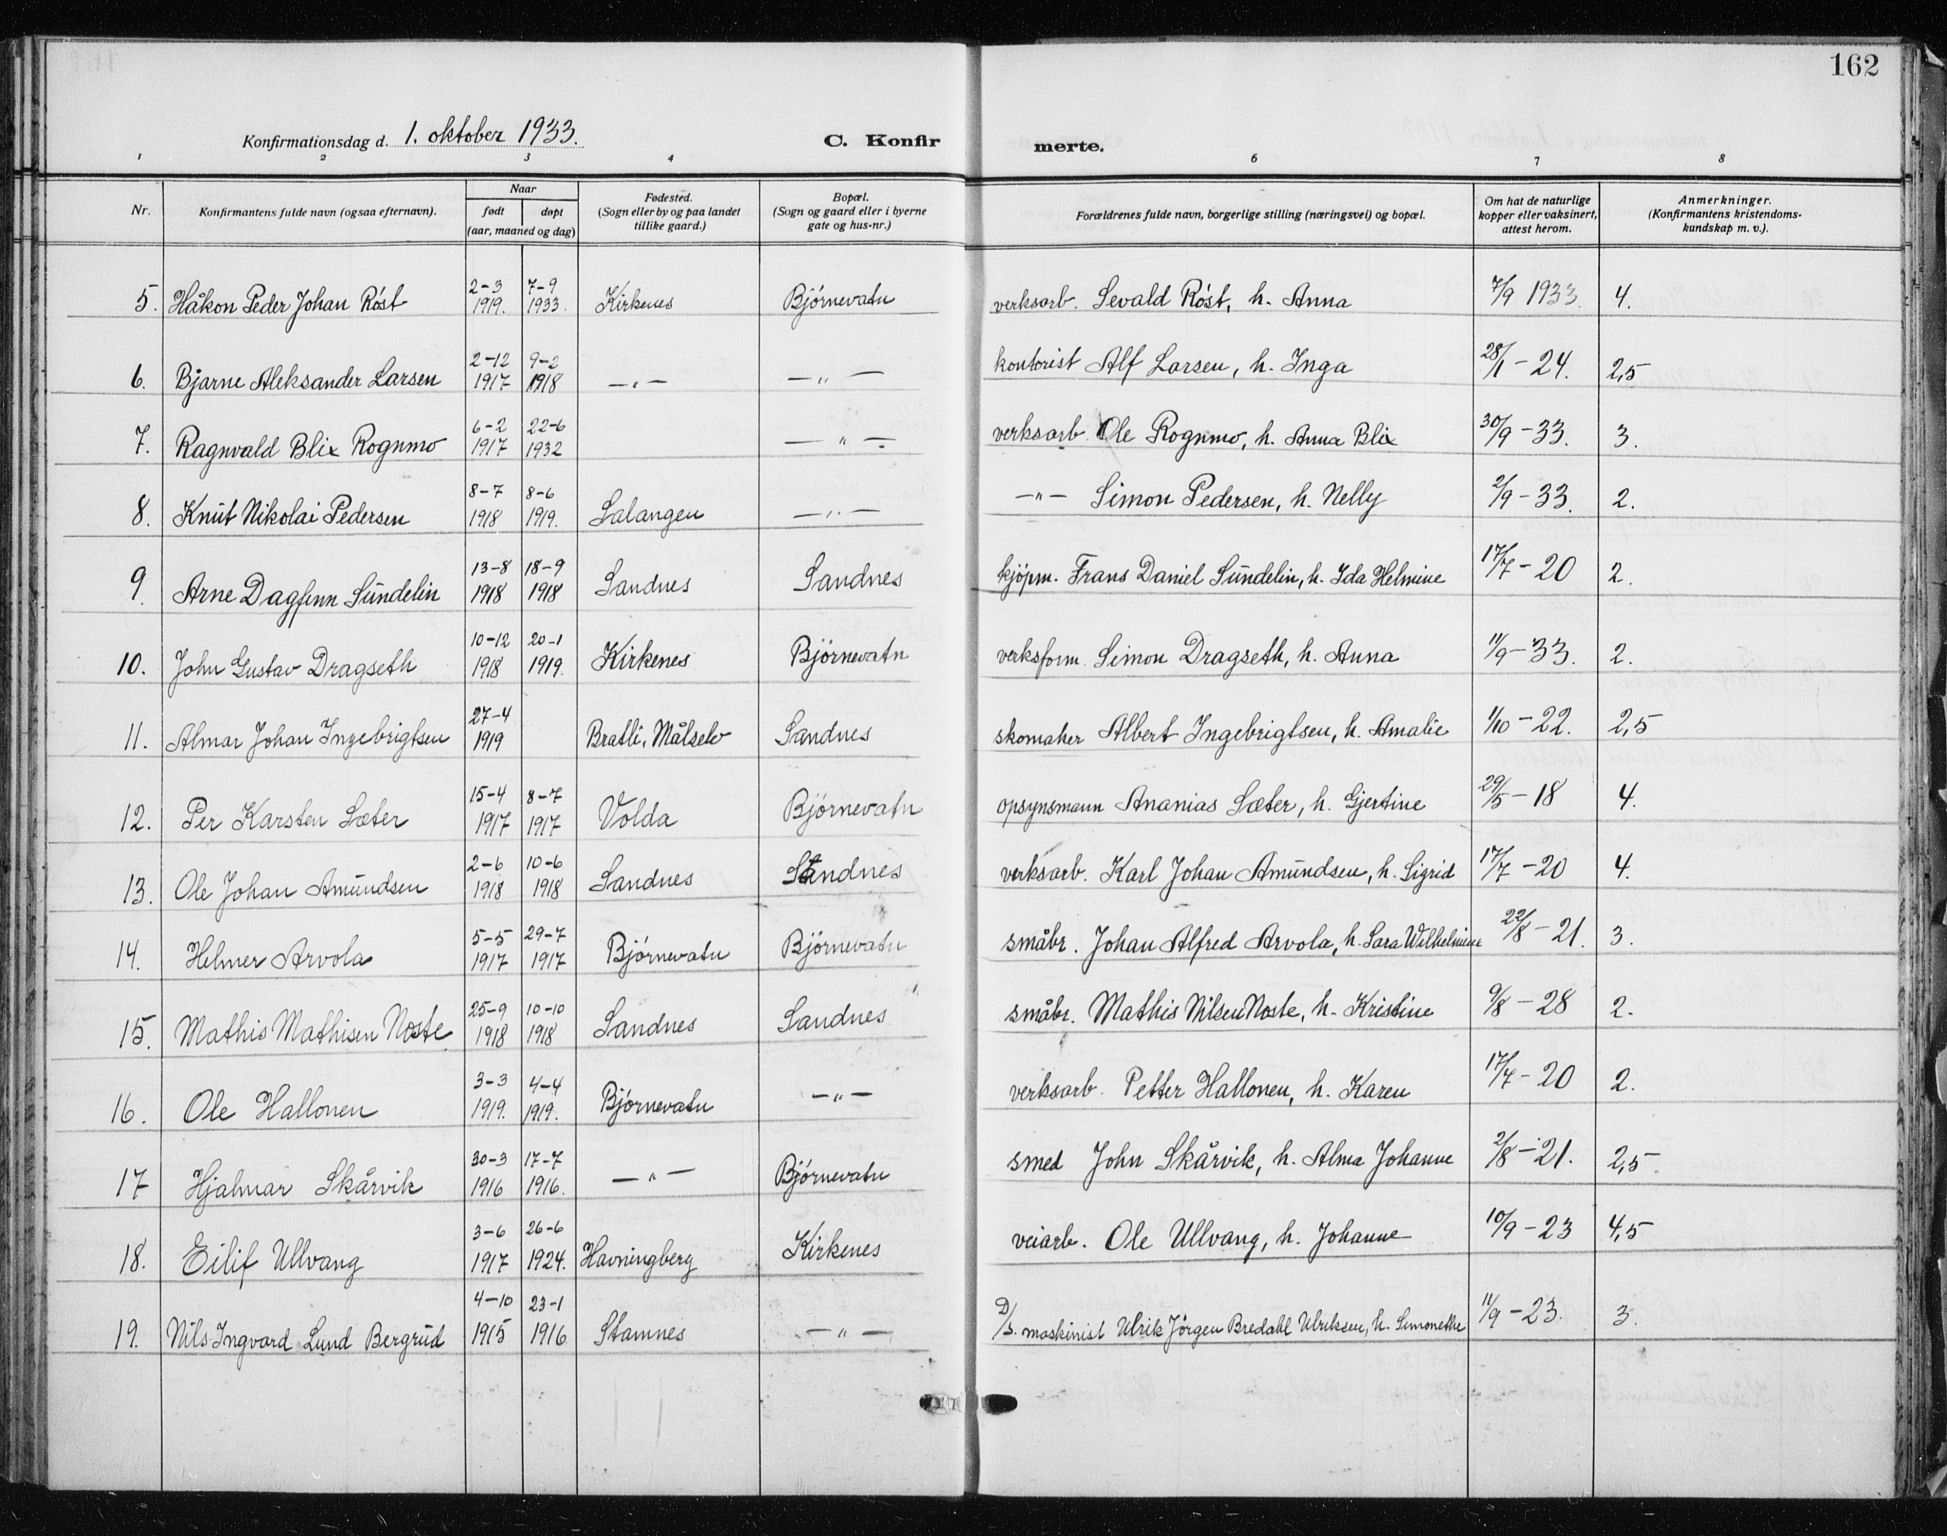 162
Konfirmationsdag d. 1. oktober 1933. C. Konfir merte.
1 2 3 4 6 7 8
Nr. Konfirmantens fulde navn (ogsaa efternavn). Naar født døpt (aar, maaned og dag) Fødested. (Sogn eller by og paa landet tillike gaard.) Bopæl. (Sogn og gaard eller i byerne gate og hus-nr.) Forældrenes fulde navn, borgerlige stilling (næringsvei) og bopæl. Om hat de naturlige kopper eller vaksinert, attest herom. Anmerkninger. (Konfirmantens kristendoms-kundskap m. v.).
5. Håkon Peder Johan Røst 2-3 1919. 7-9 1933. Kirkenes Bjørnevatn verksarb. Sevald Røst, h. Anna 7/9 1933. 4.
6. Bjarne Aleksander Larsen 2-12 1917 9-2 1918 —„— —„— kontorist Alf Larsen, h. Inga 28/1-24. 2,5
7. Ragnvald Blix Rognmo 6-2 1917 22-6 1932 —„— verksarb. Ole Rognmo, h. Anna Blix 30/9-33. 3.
8. Knut Nikolai Pedersen 8-7 1918 8-6 1919. Salangen —„— —„— Simon Pedersen, h. Nelly 2/9-33. 2.
9. Arne Dagfinn Sundelin 13-8 1918 18-9 1918 Sandnes Sandnes kjøpm. Frans Daniel Sundelin, h. Ida Helmine 17/7-20 2.
10. John Gustav Dragseth 10-12 1918 20-1 1919. Kirkenes Bjørnevatn verksform. Simon Dragseth, h. Anna 11/9-33. 2.
11. Almar Johan Ingebrigtsen 27-4 1919 Bratli, Målselv Sandnes skomaker Albert Ingebrigtsen, h. Amalie 1/10-22. 2,5
12. Per Karsten Sæter 15-4 1917 8-7 1917 Volda Bjørnevatn opsynsmann Ananias Sæter, h. Gjertine 29/5-18 4.
13. Ole Johan Amundsen 2-6 1918 10-6 1918 Sandnes Sandnes verksarb. Karl Johan Amundsen, h. Sigrid 17/7-20 4.
14. Helmer Arvola 5-5 1917 29-7 1917 Bjørnevatn Bjørnevatn småbr. Johan Alfred Arvola, h. Sara Wilhelmine 22/8-21. 3.
15. Mathis Mathisen Noste 25-9 1918 10-10 1918 Sandnes Sandnes småbr. Mathis Nilsen Noste, h. Kristine 9/8-28 2.
16. Ole Hallonen 3-3 1919. 4-4 1919. Bjørnevatn —„— verksarb. Petter Hallonen, h. Karen 17/7-20 2.
17 Hjalmar Skårvik 30-3 1916 17-7 1916. —„— Bjørnevatn smed John Skårvik, h. Alma Johanne 2/8-21. 2,5.
18. Eilif Ullvang 3-6 1917 26-6 1924. Havningberg Kirkenes veiarb. Ole Ullvang, h. Johanne 10/9-23 4,5
19. Nils Ingvard Lund Bergrud 4-10 1915 23-1 1916 Stamnes —„— D/S. maskinist Ulrik Jørgen Bredahl Ulriksen, h. Simonethe 11/9-23. 3.